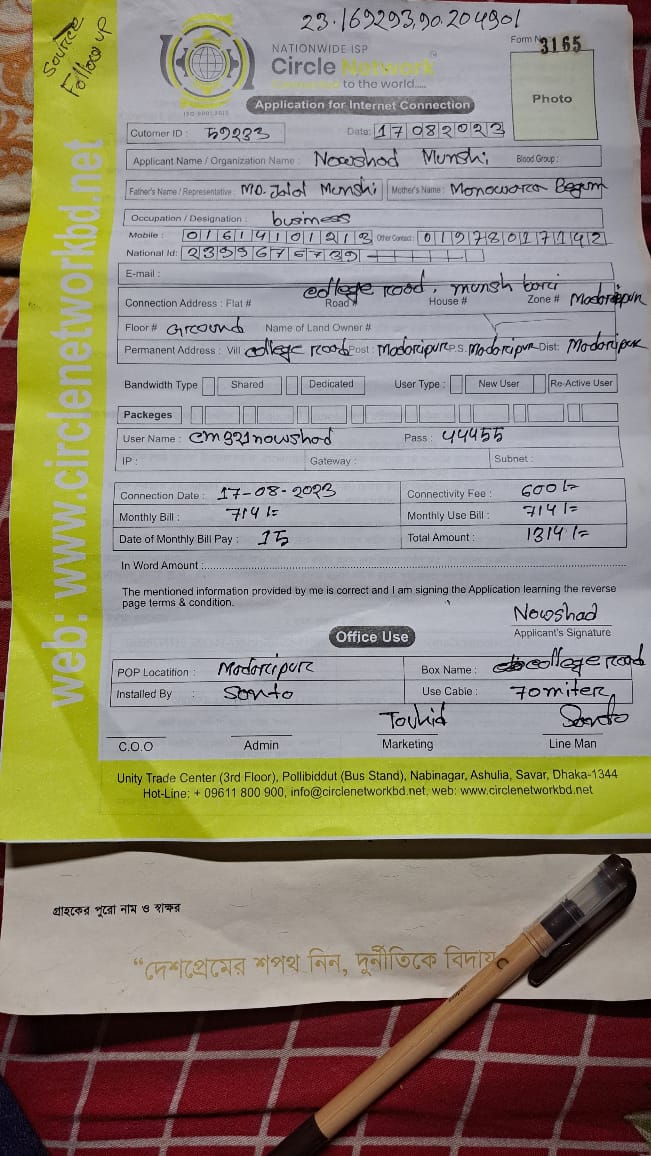 23.169293,90.204901
Source
Follow up
NATIONWIDE ISP
Circle Network
to the world.....
ISO 9001:2015
Form No 3165
Photo
Application for Internet Connection
Cutomer ID : 59233 Date: 17082023
Applicant Name / Organization Name : Nowshad Munshi Blood Group :
Father's Name / Representative : MD. Jalal Munshi Mother's Name : Monowara Begum
Occupation / Designation : business
Mobile : 01614101213 Other Contact : 01978017142
National Id: 2395676739
E-mail :
college road, munsh bari
Connection Address : Flat # Road # House # Zone # Madaripur
Floor # Ground Name of Land Owner #
Permanent Address : Vill college road Post : Madaripur P.S. Madaripur Dist: Madaripur
Bandwidth Type Shared Dedicated User Type : New User Re-Active User
Packeges
User Name : cmg21nowshad Pass : 44455
IP : Gateway : Subnet :
Connection Date : 17-08-2023 Connectivity Fee : 600/=
Monthly Bill : 714/= Monthly Use Bill : 714/=
Date of Monthly Bill Pay : 15 Total Amount : 1314/=
In Word Amount :
The mentioned information provided by me is correct and I am signing the Application learning the reverse
page terms & condition.
Nowshad
Applicant's Signature
Office Use
POP Locatition : Madaripur Box Name : college road
Installed By : Santo Use Cable : 70miter
Touhid Santo
C.O.O Admin Marketing Line Man
Unity Trade Center (3rd Floor), Pollibiddut (Bus Stand), Nabinagar, Ashulia, Savar, Dhaka-1344
Hot-Line: + 09611 800 900, info@circlenetworkbd.net, web: www.circlenetworkbd.net
web: www.circlenetworkbd.net
গ্রাহকের পুরো নাম ও স্বাক্ষর
“দেশপ্রেমের শপথ নিন, দুর্নীতিকে বিদায়